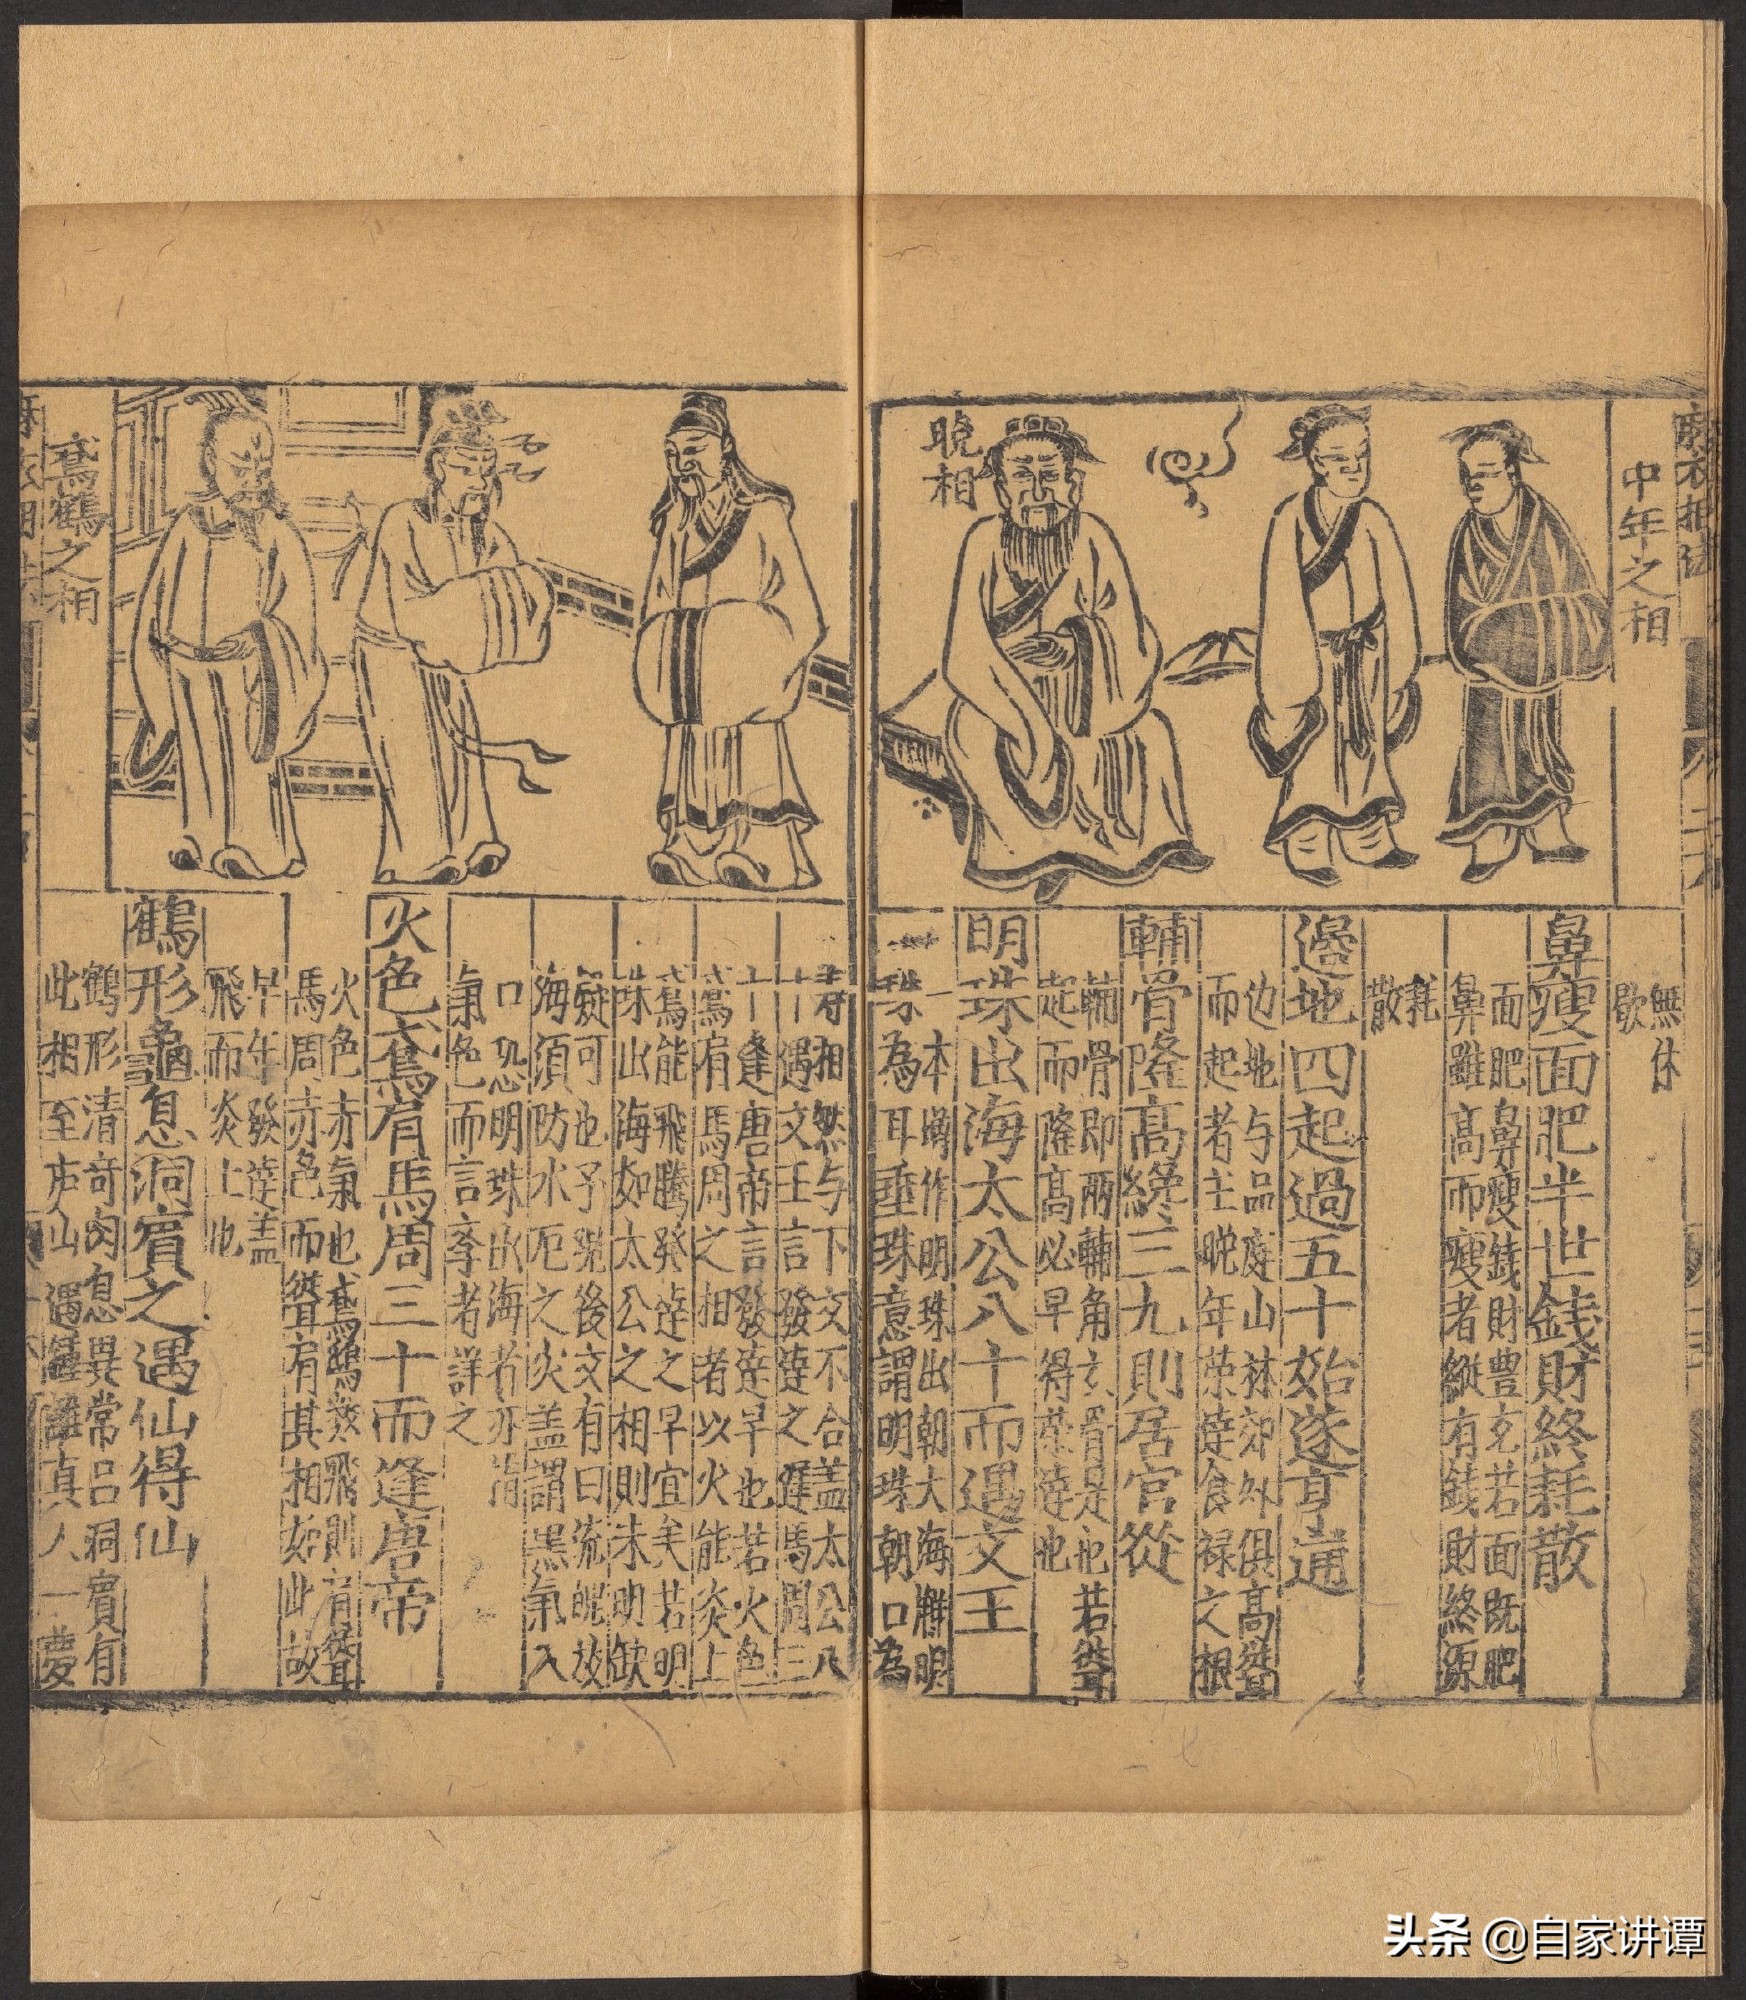 中年之相
晚相
無休
歇
鼻瘦面肥半世錢財終耗散
面肥鼻瘦錢財豊𠃔若面既肥
鼻雖高而瘦者縱有錢財終須
耗
散
邉地四起過五十始遂亨通
边地与品庭山林郊外俱高聳
而起者主晚年荣達食禄之根
輔骨隆高纔三九則居官從
輔骨即兩輔角玄骨是也若聳
起而隆高必早年得荣達也
明珠出海太公八十而遇文王
一本塆作明珠出朝大海觧明
珠為耳垂珠意謂明珠朝口為
壽相然与下文不合盖太公八
十遇文王言發達之遲馬周三
十逢唐帝言發達早也若火色
鳶肩馬周之相者以火能炎上
鳶能飛騰發達之早宜矣若明
珠出海如太公之相則未明缺
疑可也予覌後文有曰流魄放
海須防水厄之災盖謂黑氣入
口恐明珠出海者亦指
氣色而言孝者詳之
火色鳶肩馬周三十而逢唐帝
火色赤氣也鳶鴟類飛則肩聳
馬周赤色而聳肩其相如此故
早年發達盖
飛而炎上也
鶴形龜息洞賓之遇仙得仙
鶴形清竒龜息異常吕洞賓有
此相至庐山遇鍾離真人一夢
鳶鶴之相
头条 @自家讲谭